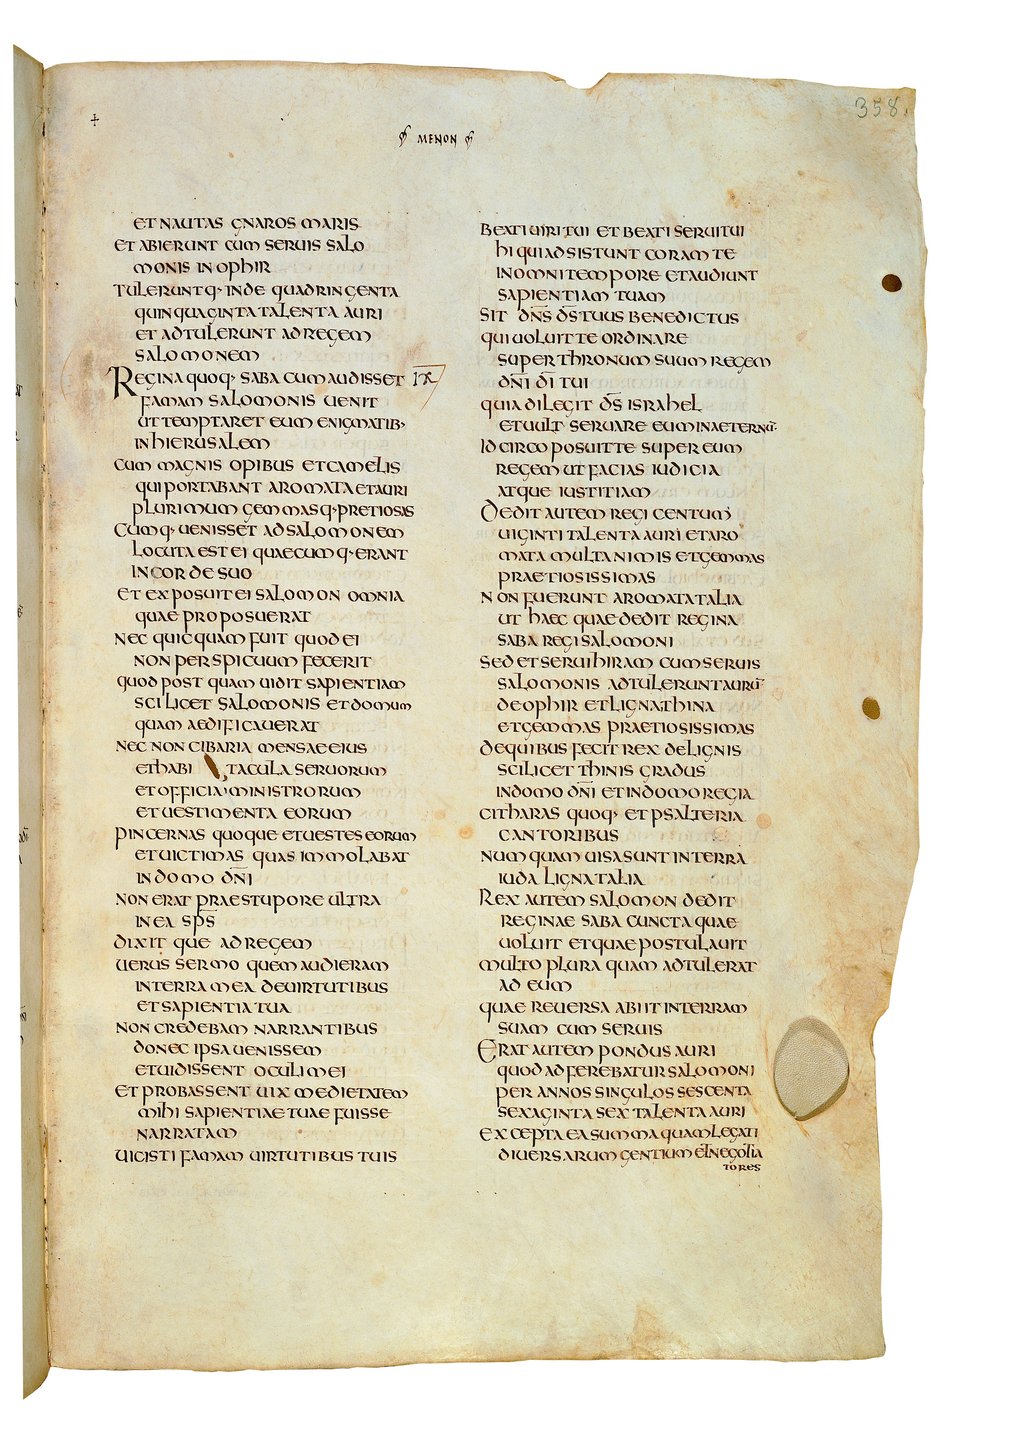 358.
+
MENON
ET NAUTAS GNAROS MARIS
ET ABIERUNT CUM SERUIS SALO
MONIS IN OPHIR
TULERUNTQ· INDE QUADRINGENTA
QUINQUAGINTA TALENTA AURI
ET ADTULERUNT AD REGEM
SALOMONEM
REGINA QUOQ· SABA CUM AUDISSET IX
FAMAM SALOMONIS UENIT
UT TEMPTARET EUM ENIGMATIB·
IN HIERUSALEM
CUM MAGNIS OPIBUS ET CAMELIS
QUI PORTABANT AROMATA ET AURI
PLURIMUM GEMMASQ· PRETIOSAS
CUMQ· UENISSET AD SALOMONEM
LOCUTA EST EI QUAECUMQ· ERANT
IN CORDE SUO
ET EXPOSUIT EI SALOMON OMNIA
QUAE PROPOSUERAT
NEC QUICQUAM FUIT QUOD EI
NON PERSPICUUM FECERIT
QUOD POST QUAM UIDIT SAPIENTIAM
SCILICET SALOMONIS ET DOMUM
QUAM AEDIFICAUERAT
NEC NON CIBARIA MENSAE EIUS
ET HABI TACULA SERUORUM
ET OFFICIA MINISTRORUM
ET UESTIMENTA EORUM
PINCERNAS QUOQUE ET UESTES EORUM
ET UICTIMAS QUAS IMMOLABAT
IN DOMO DN̄I
NON ERAT PRAE STUPORE ULTRA
IN EA SP̄S
DIXITQUE AD REGEM
UERUS SERMO QUEM AUDIERAM
IN TERRA MEA DE UIRTUTIBUS
ET SAPIENTIA TUA
NON CREDEBAM NARRANTIBUS
DONEC IPSA UENISSEM
ET UIDISSENT OCULI MEI
ET PROBASSENT UIX MEDIETATEM
MIHI SAPIENTIAE TUAE FUISSE
NARRATAM
UICISTI FAMAM UIRTUTIBUS TUIS
BEATI UIRI TUI ET BEATI SERUI TUI
HI QUI ADSISTUNT CORAM TE
IN OMNI TEMPORE ET AUDIUNT
SAPIENTIAM TUAM
SIT DN̄S D̄S TUUS BENEDICTUS
QUI UOLUIT TE ORDINARE
SUPER THRONUM SUUM REGEM
DN̄I D̄I TUI
QUIA DILEGIT D̄S ISRAHEL
ET UULT SERUARE EUM IN AETERNŪ·
IDCIRCO POSUIT TE SUPER EUM
REGEM UT FACIAS IUDICIA
ATQUE IUSTITIAM
DEDIT AUTEM REGI CENTUM
UIGINTI TALENTA AURI ET ARO
MATA MULTA NIMIS ET GEMMAS
PRAETIOSISSIMAS
NON FUERUNT AROMATA TALIA
UT HAEC QUAE DEDIT REGINA
SABA REGI SALOMONI
SED ET SERUI HIRAM CUM SERUIS
SALOMONIS ADTULERUNT AURŪ·
DE OPHIR ET LIGNA THINA
ET GEMMAS PRAETIOSISSIMAS
DE QUIBUS FECIT REX DE LIGNIS
SCILICET THINIS GRADUS
IN DOMO DN̄I ET IN DOMO REGIA
CITHARAS QUOQ· ET PSALTERIA
CANTORIBUS
NUMQUAM UISA SUNT IN TERRA
IUDA LIGNA TALIA
REX AUTEM SALOMON DEDIT
REGINAE SABA CUNCTA QUAE
UOLUIT ET QUAE POSTULAUIT
MULTO PLURA QUAM ADTULERAT
AD EUM
QUAE REUERSA ABIIT IN TERRAM
SUAM CUM SERUIS
ERAT AUTEM PONDUS AURI
QUOD ADFEREBATUR SALOMONI
PER ANNOS SINGULOS SESCENTA
SEXAGINTA SEX TALENTA AURI
EXCEPTA EA SUMMA QUAM LEGATI
DIUERSARUM GENTIUM ET NEGOTIA
TORES